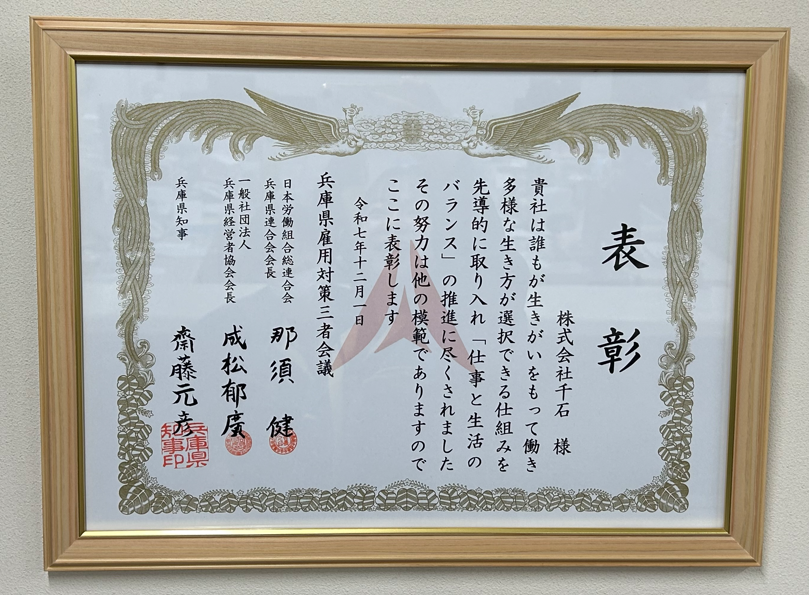 表彰
株式会社千石 様
貴社は誰もが生きがいをもって働き
多様な生き方が選択できる仕組みを
先導的に取り入れ「仕事と生活の
バランス」の推進に尽くされました
その努力は他の模範でありますので
ここに表彰します
令和七年十二月一日
兵庫県雇用対策三者会議
日本労働組合総連合会
兵庫県連合会会長
那須 健
一般社団法人
兵庫県経営者協会会長
成松郁廣
兵庫県知事
齋藤元彦
兵庫県
知事印